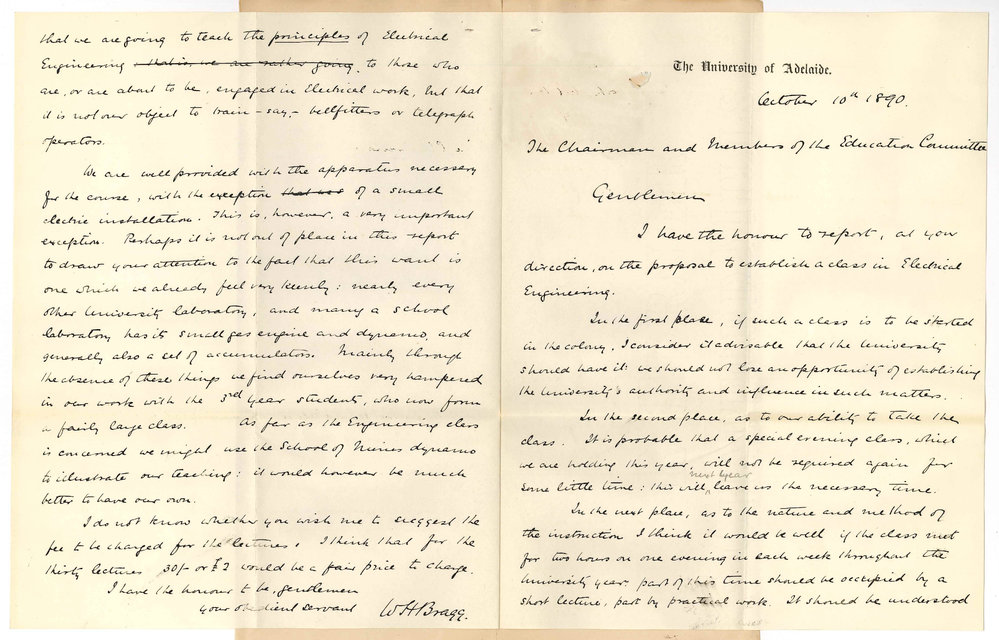 The University of Adelaide.
October 10th 1890.
The Chairman and Members of the Education Committee
Gentlemen
I have the honour to report, at your
direction, on the proposal to establish a class in Electrical
Engineering.
In the first place, if such a class is to be started
in the colony, I consider it advisable that the University
should have it: we should not lose an opportunity of establishing
the University's authority and influence in such matters.
In the second place, as to our ability to take the
class. It is probable that a special evening class, which
we are holding this year, will not be required again for
some little time: this will next year leave us the necessary time.
In the next place, as to the nature and method of
the instruction I think it would be well if the class met
for two hours on one evening in each week throughout the
University year; part of this time should be occupied by a
short lecture, part by practical work. It should be understood
that we are going to teach the principles of Electrical
Engineering that is, we are rather going, to those who
are, or are about to be, engaged in Electrical work, but that
it is not our object to train - say - bellfitters or telegraph
operators.
We are well provided with the apparatus necessary
for the course, with the exception that was of a small
electric installation. This is, however, a very important
exception. Perhaps it is not out of place in this report
to draw your attention to the fact that this want is
one which we already feel very keenly: nearly every
other University laboratory, and many a school
laboratory has its small gas engine and dynamo, and
generally also a set of accumulators. Mainly through
the absence of these things we find ourselves very hampered
in our work with the 3rd year students, who now form
a fairly large class. As far as the Engineering class
is concerned we might use the School of Mines dynamo
to illustrate our teaching: it would however be much
better to have our own.
I do not know whether you wish me to suggest the
fee to be charged for the lectures. I think that for the
thirty lectures 30/- or £2 would be a fair price to charge.
I have the honour to be, gentlemen
your obedient servant W H Bragg.